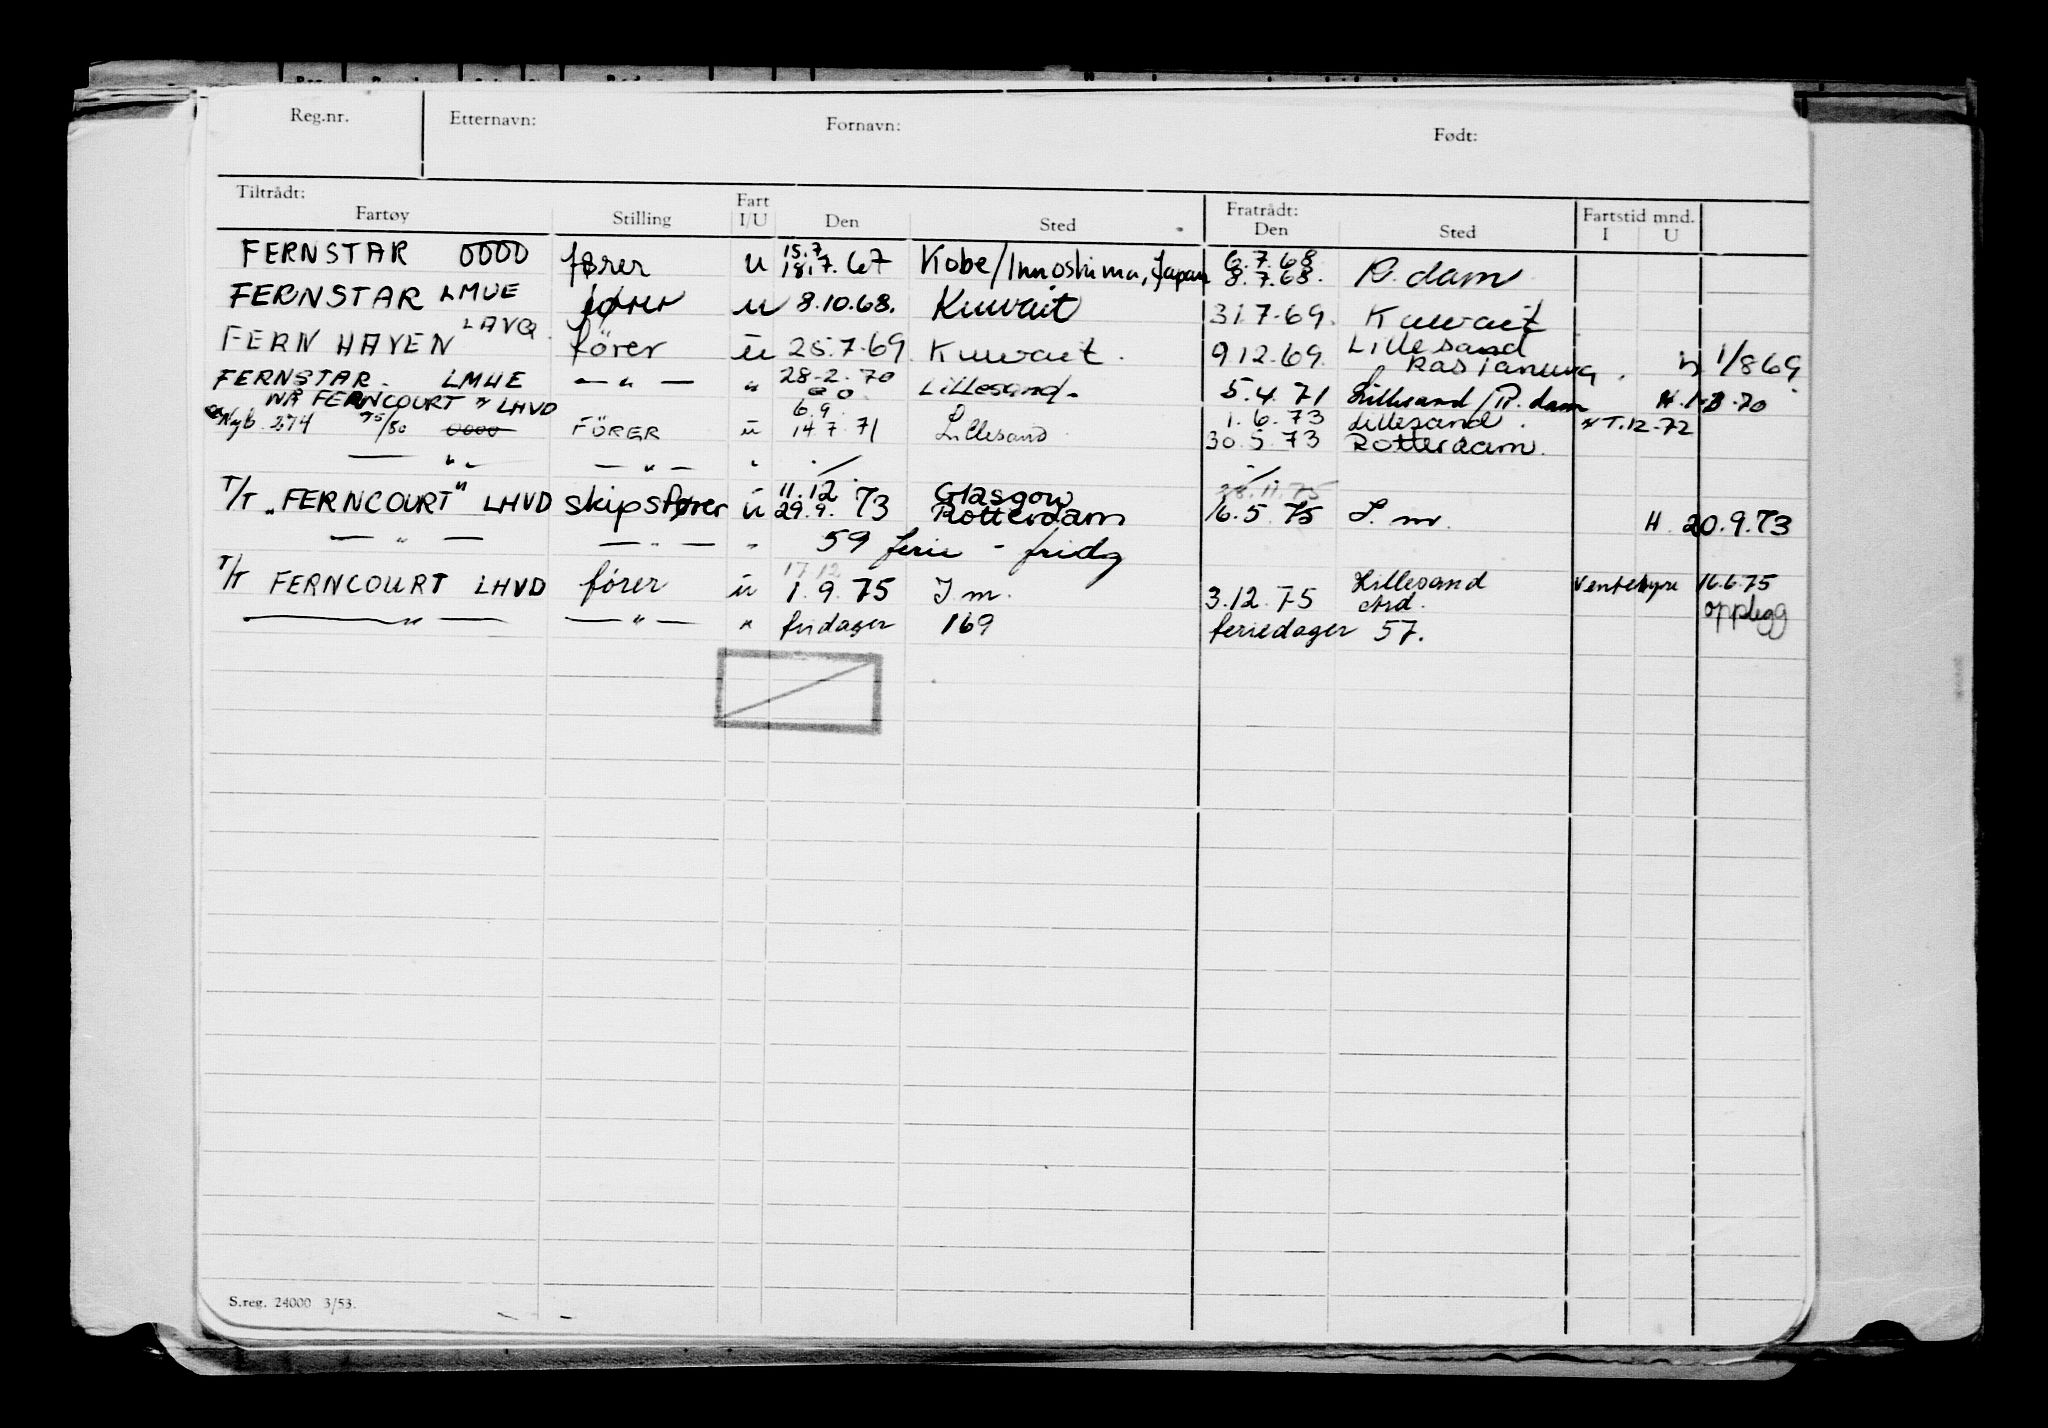 Reg.nr. Etternavn: Fornavn: Født:
Tiltrådt: Fartøy Stilling Fart I/U Den Sted Fratrådt: Den Sted Fartstid mnd. I U
FERNSTAR OOOO fører u 15.7 18.7.67 Kobe/Innoshima, Japan 6.7.68 8.7.68. R.dam
FERNSTAR LMUE fører u 8.10.68. Kuwait 31.7.69. Kuwait
FERN HAVEN LAVQ fører u 25.7.69 Kuwait. 9.12.69. Lillesand Ras Tanura. 1/8 69
FERNSTAR. LMUE —"— " 28.2.70 Lillesand. 5.4.71 Lillesand/R.dam
NÅ FERNCOURT " LHVD
274 75/80 OOOO FÖRER u 6.9. 14.7.71 Lillesand 1.6.73 30.5.73 Lillesand. Rotterdam. T.12.72
—"— —"— "
T/T „FERNCOURT" LHVD skipsfører u 11.12. 29.9.73 Glasgow Rotterdam 28.11.75 16.5.75 I.m. H. 20.9.73
—"— —"— " 59 ferie - fridg
T/T FERNCOURT LHVD fører u 17.12 1.9.75 I m. 3.12.75 Lillesand Ard. Ventehyre 16.6.75 opplegg
—"— —"— " fridager 169 feriedager 57.
S.reg. 24000 3/53.